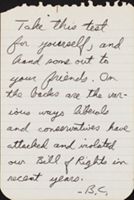 Take this test
for yourself, and
hand some out to
your friends. On
the backs are the var-
ious ways liberals
and conservatives have
attacked and violated
our Bill of Rights in
recent years.
-B.C.